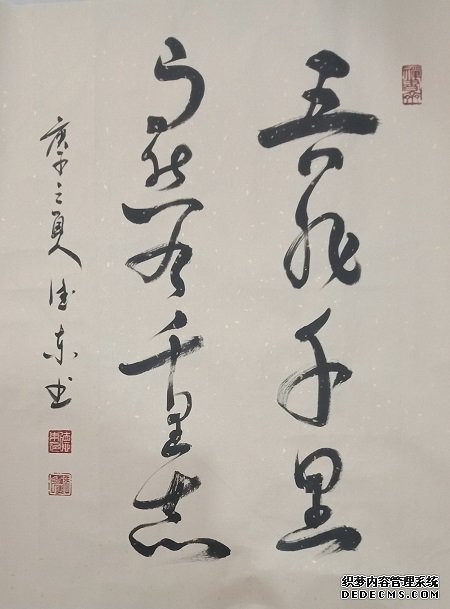 吾非千里
马然有千里志
庚子之夏 德东书
织梦内容管理系统
DEDECMS.COM